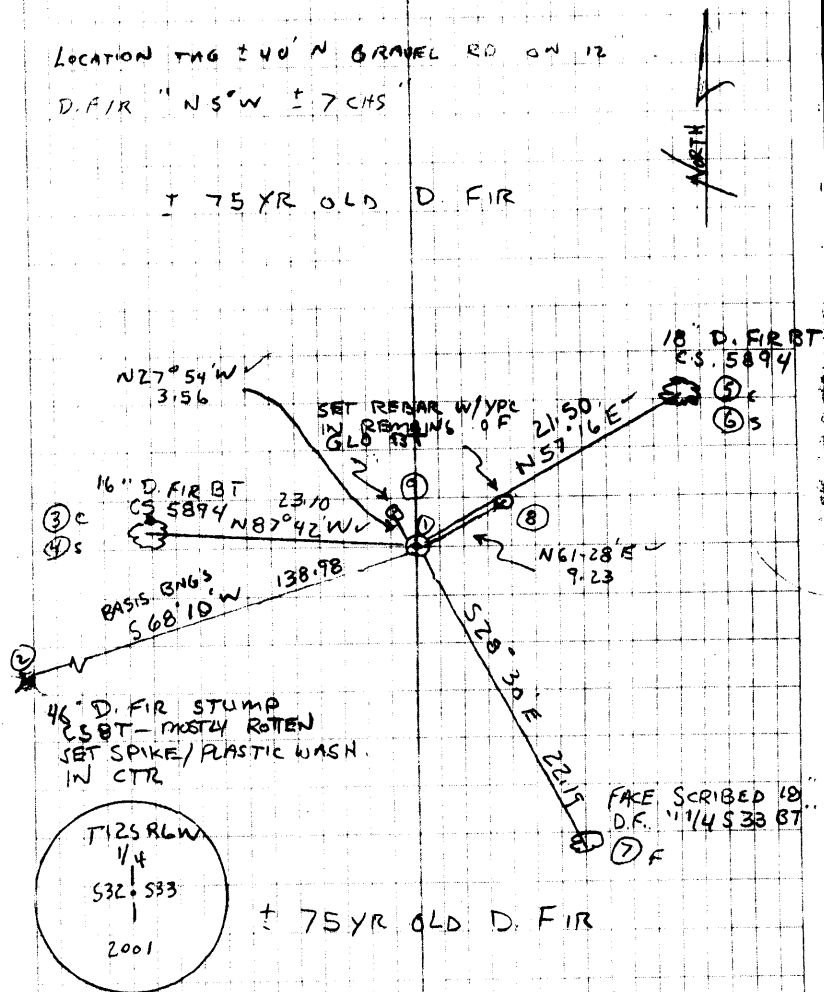 LOCATION TAG ± 40' N GRAVEL RD ON 12
D.FIR "N 5°W ± 7 CHS"
± 75 YR OLD D. FIR
NORTH
18" D. FIR BT
C.S. 5894
⑤ C
⑥ S
N27°54'W
3.56
SET REBAR W/YPC
IN REMAINS OF
GLO
21.50
N57-16'E
16" D. FIR BT
CS 5894
③ C
④ S
23.10
N87°42'W
⑨
①
⑧
N61-28'E
9.23
BASIS BNG'S
S68°10'W
138.98
②
46" D. FIR STUMP
CS BT - MOSTLY ROTTEN
SET SPIKE/PLASTIC WASH.
IN CTR
S28°30'E
22.19
FACE SCRIBED 18"
D.F. "1/4 S33 BT"
⑦ F
T12S R6W
1/4
S32 S33
2001
± 75 YR OLD D. FIR